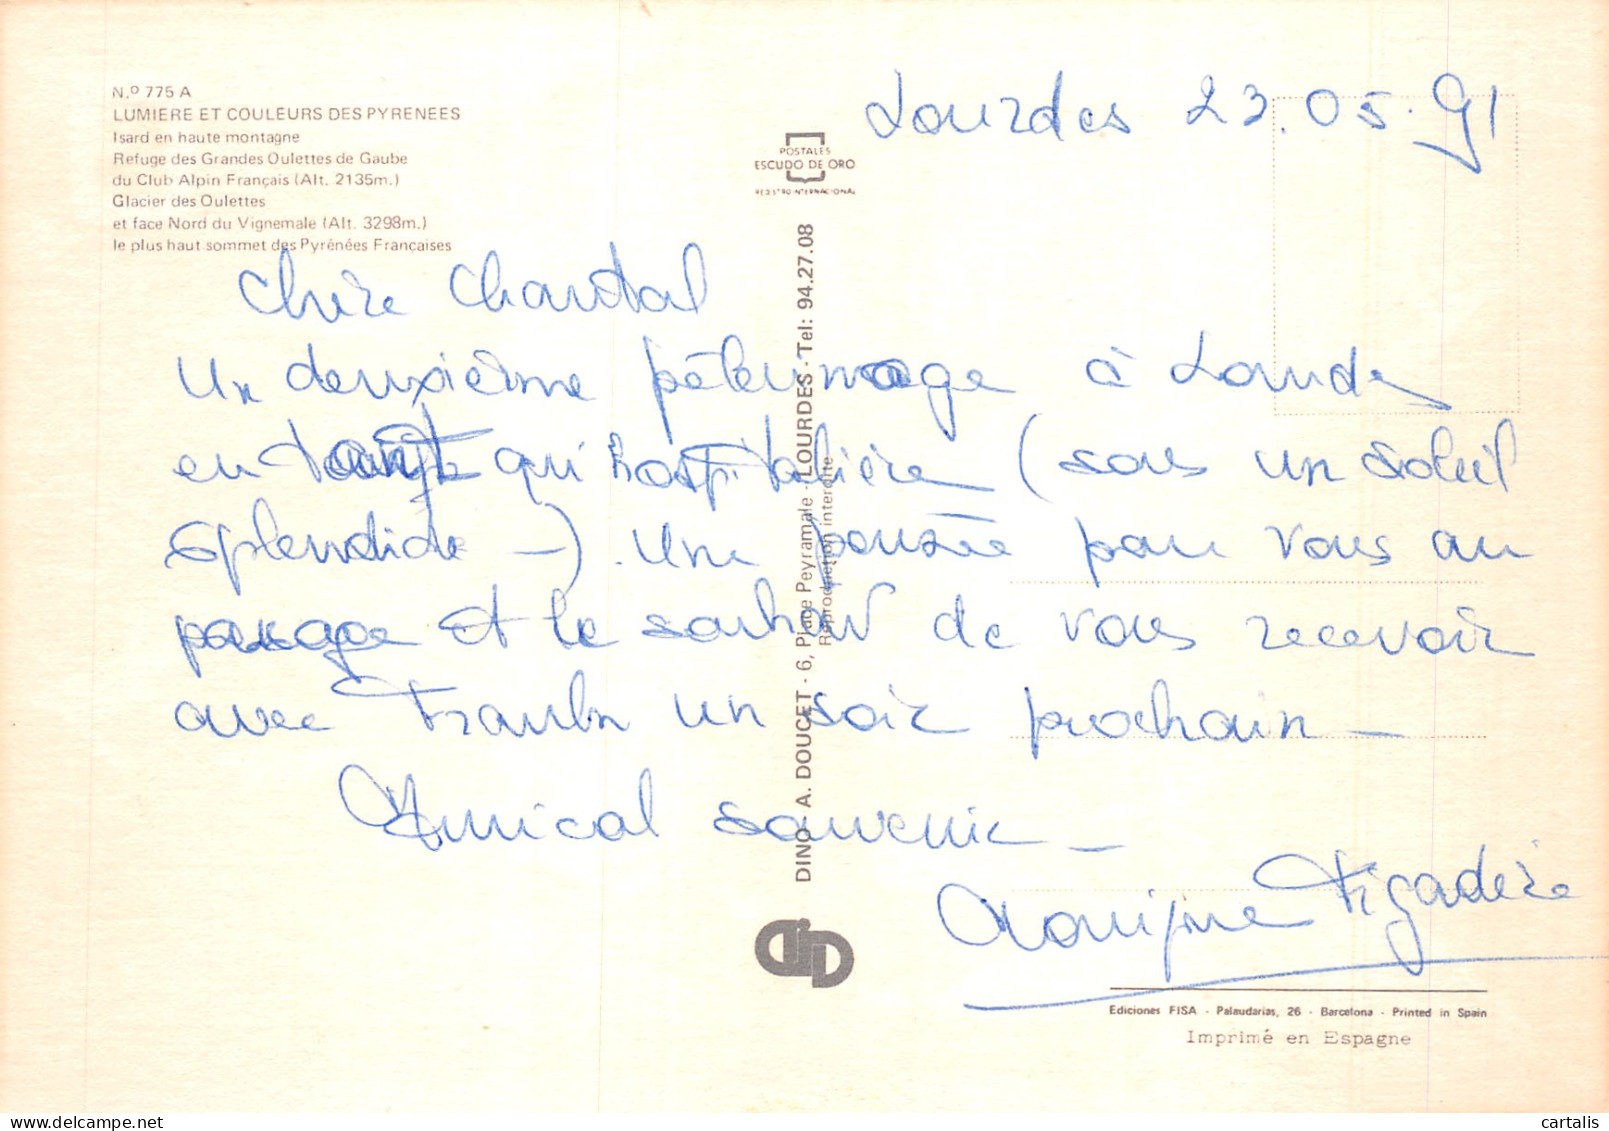 N.º 775 A
LUMIERE ET COULEURS DES PYRENEES
Isard en haute montagne
Refuge des Grandes Oulettes de Gaube
du Club Alpin Français (Alt. 2135m.)
Glacier des Oulettes
et face Nord du Vignemale (Alt. 3298m.)
le plus haut sommet des Pyrénées Françaises
POSTALES
ESCUDO DE ORO
REGISTRO INTERNACIONAL
Lourdes 23.05.91
Chère Chantal
Un deuxième pèlerinage à Lourdes
en tant qu'hospitalière (sous un soleil
splendide -). Une pensée pour vous au
passage et le souhait de vous recevoir
avec un soir prochain -
Amical souvenir -
DINO - A. DOUCET - 6, Place Peyramale - LOURDES - Tel: 94.27.08
Reproduction interdite
Ediciones FISA - Palaudarias, 26 - Barcelona - Printed in Spain
Imprimé en Espagne
cartalis